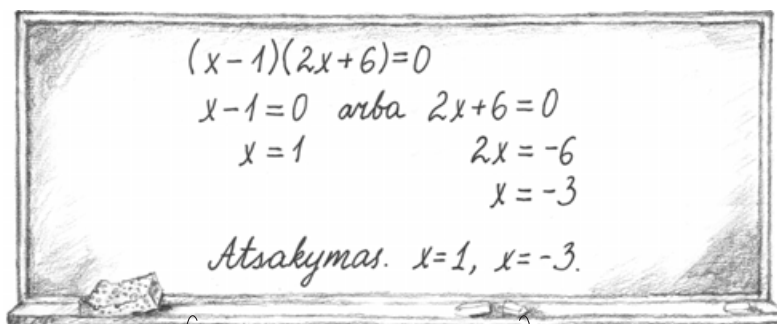 (x-1)(2x+6)=0
x-1=0 arba 2x+6=0
x=1 2x=-6
x=-3
Atsakymas. x=1, x=-3.